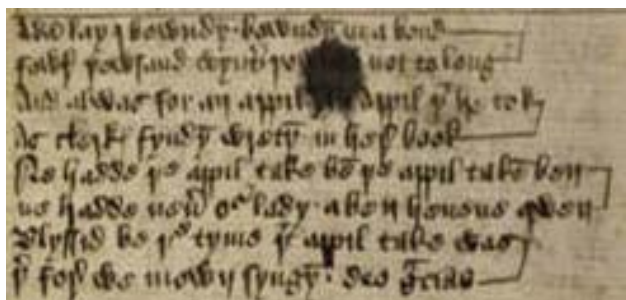 Adā lay I bowndȳ · bowndȳ in a bond
fowr þowsand wynt̄ þowt not to long
And al was for an appil an appil þͭ he tok
As clerkꝭ fyndȳ wretȳ in herꝭ book
Ne hadde þͤ appil take bē þͤ appil take ben
ne hadde neu̅ oͬ lady · a ben heuene qwen
Blyssid be þͤ tyme þͭ appil take was
þ̄ for we mown syngȳ · deo gr̄cias